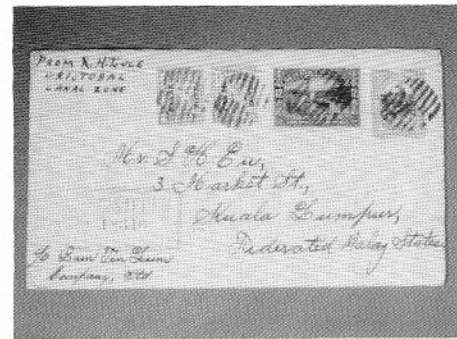 FROM
CRISTOBAL
CANAL ZONE
Mr S H Eu,
3 Market St.,
Kuala Lumpur,
Federated Malay States
Company, Ltd